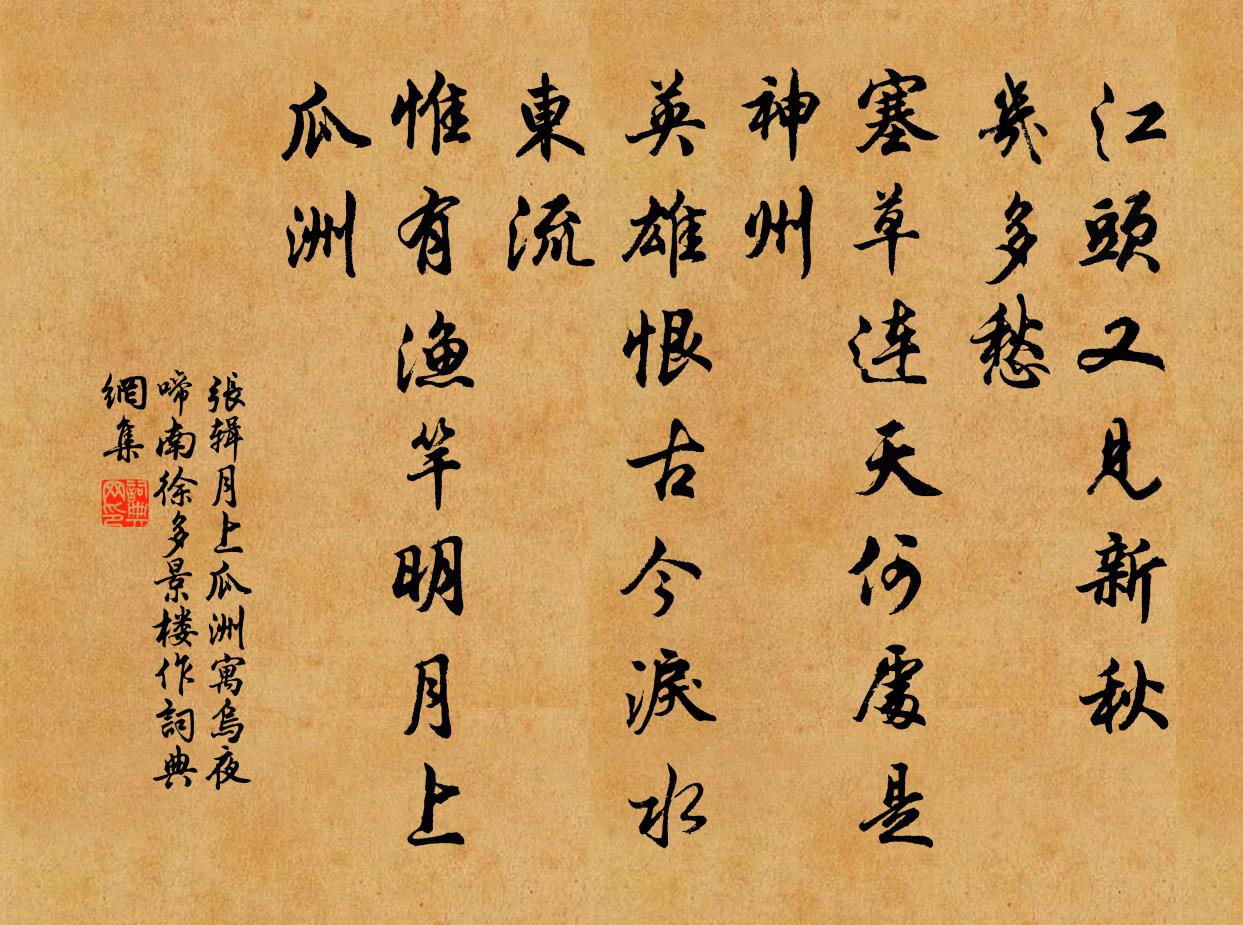 江頭又見新秋
幾多愁
塞草連天何處是
神州
英雄恨古今淚水
東流
惟有漁竿明月上
瓜洲
張辑月上瓜洲寓烏夜
啼南徐多景楼作詞典
網集
詞典
网印